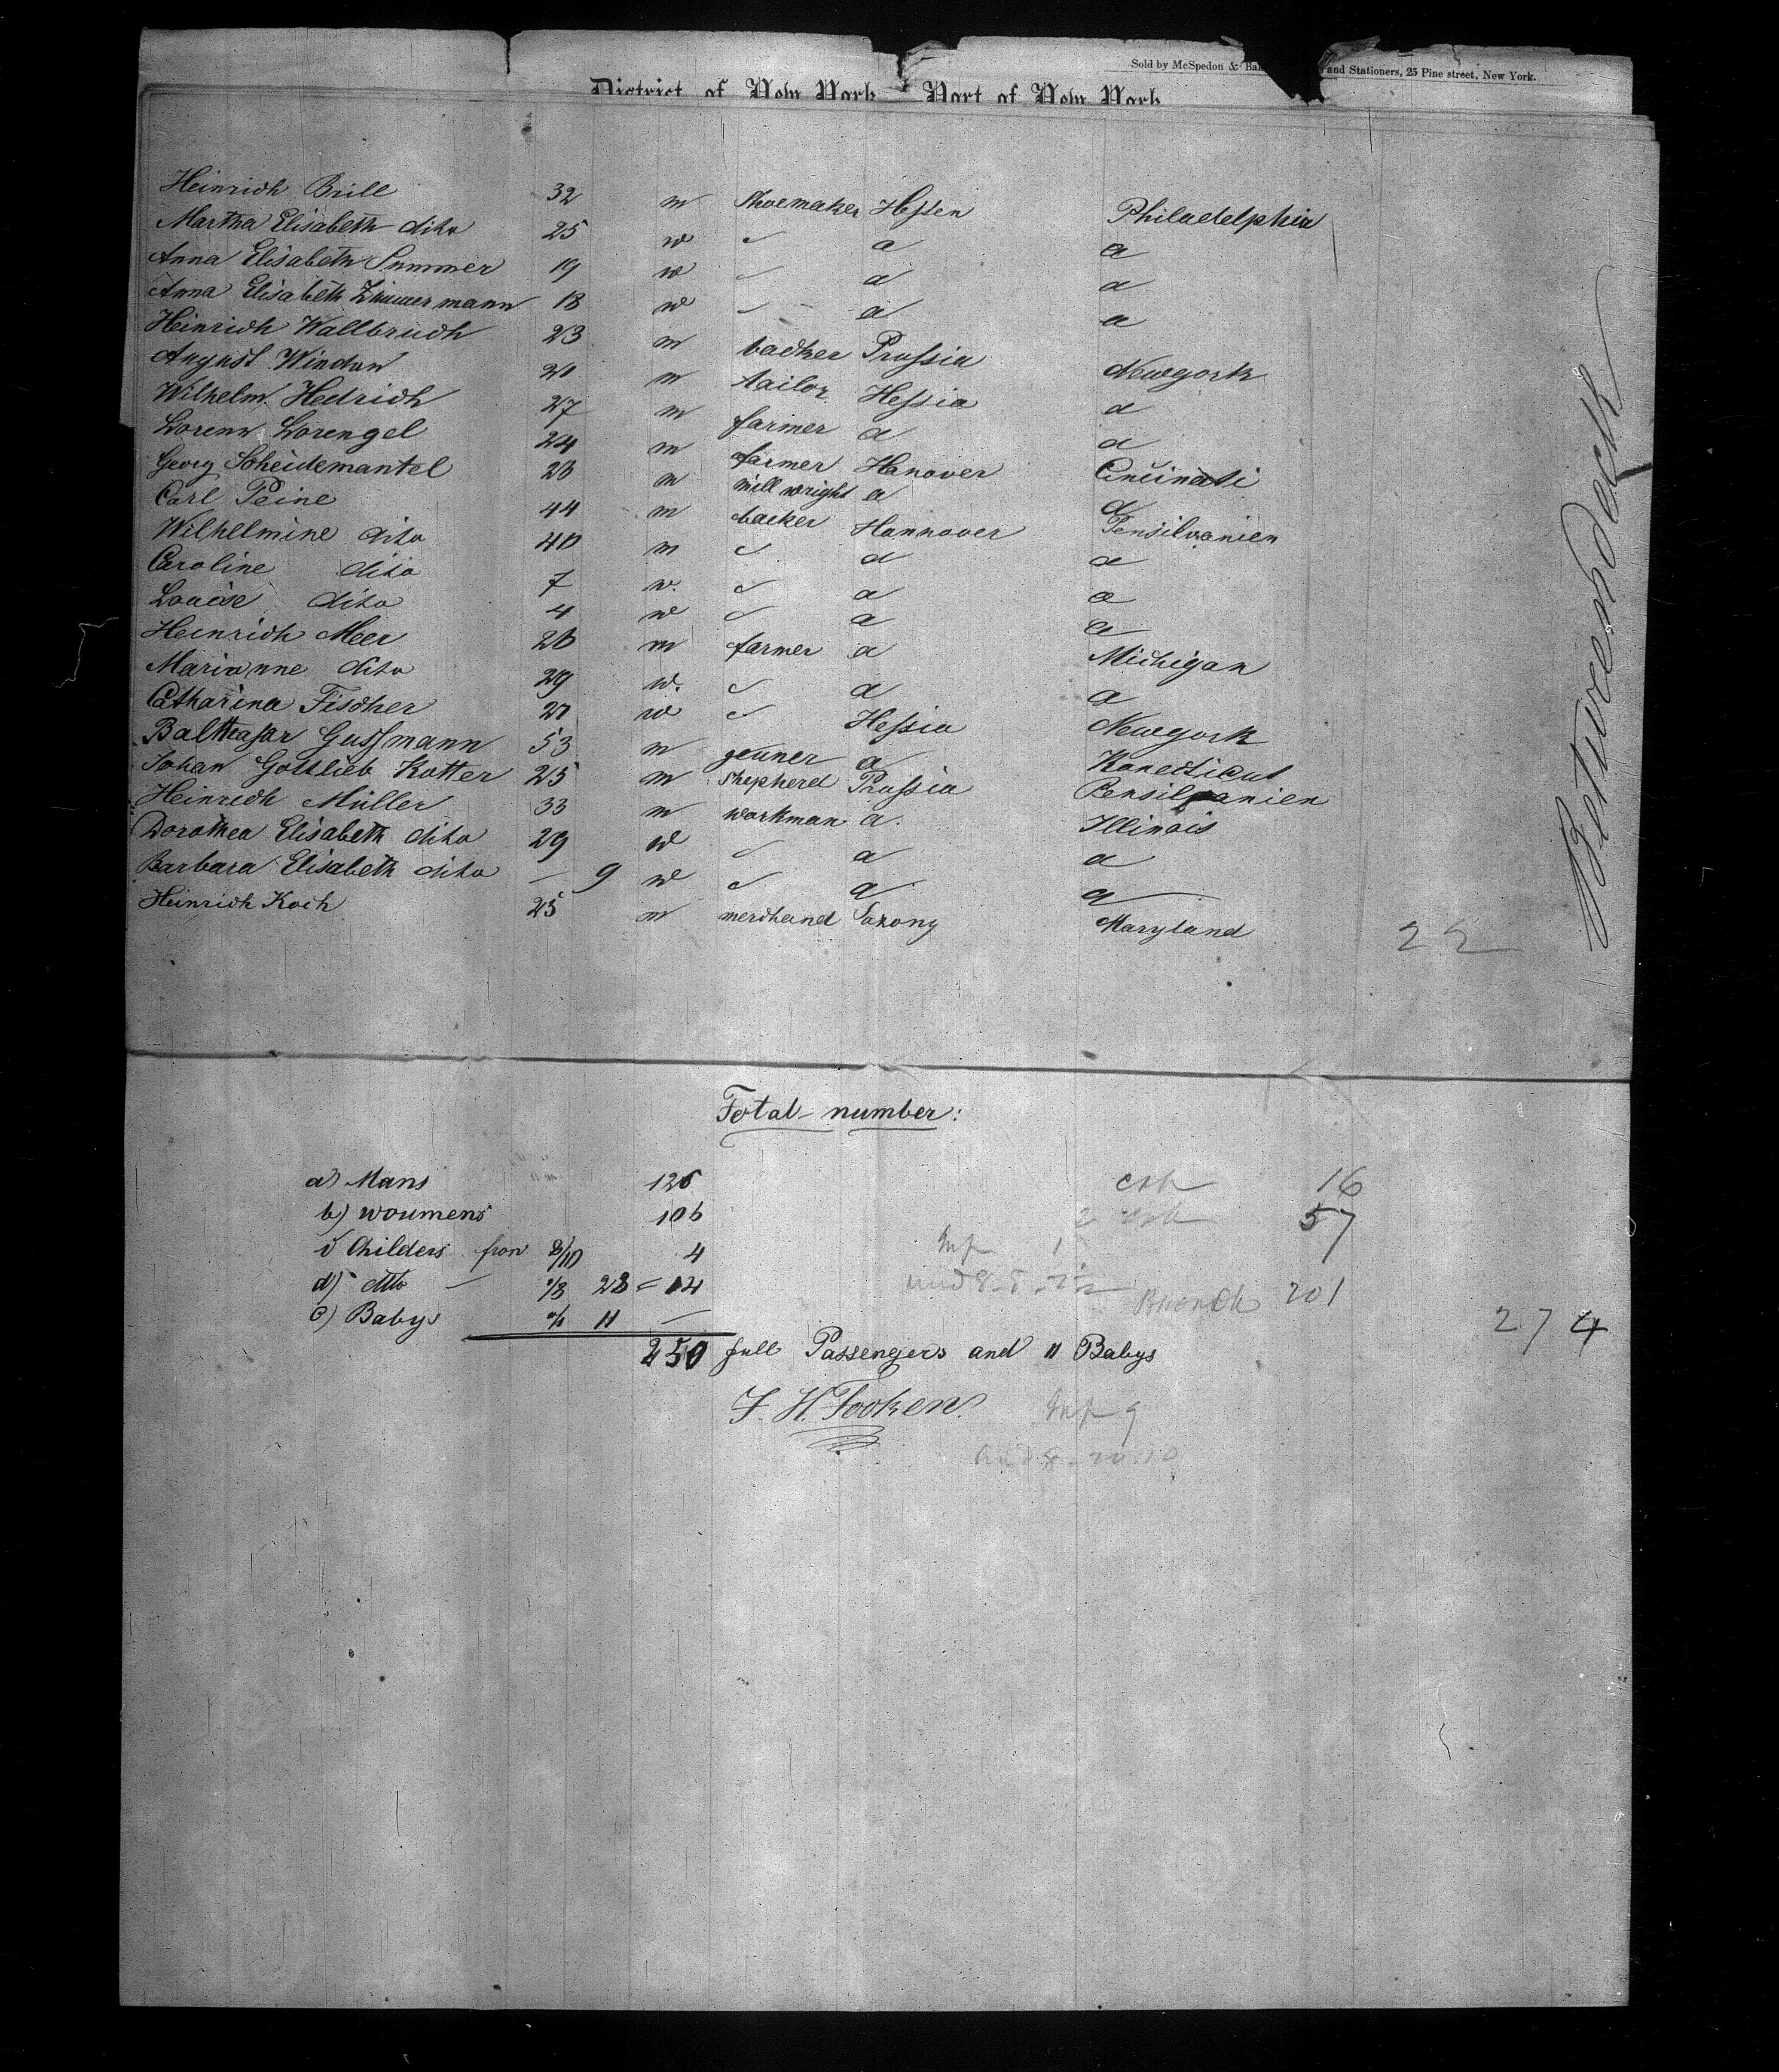 Sold by McSpedon & and Stationers, 25 Pine street, New York.
District of New York Port of New York
Heinrich Brill 32 m Shoemaker Hessen Philadelphia
Martha Elisabeth dito 25 w " a a
Anna Elisabeth Summer 19 w " a a
Anna Elisabeth Zimmermann 18 w " a a
Heinrich Wallbruch 23 m backer Prussia Newyork
August m tailor Hessia a
Wilhelm Hedrich 27 m farmer a a
Lorenz Lorengel 24 m farmer Hanover Cincinati
Georg Scheidemantel 28 m mill wright a a
Carl Peine 44 m backer Hannover Pensilvanien
Wilhelmine dito 40 m " a a
Caroline dito 7 w. " a a
Louise dito 4 w " a a
Heinrich Meer 26 m farmer a Michigan
Marianne dito 29 w. " a a
Catharina Fischer w " Hessia Newyork
Balthasar Gussmann 53 m a Konecticut
Johan Gottlieb Kotter 25 m shepherd Prussia Pensilvanien
Heinrich Müller 33 m workman a. Illinois
Dorothea Elisabeth dito 29 w " a a
Barbara Elisabeth dito — 9 w " a a
Heinrich Koch 25 m merchand Saxony Maryland
22
Betweendeck
Total number:
a) Mans 126 16
b) woumens 106 2 57
c) Childers from 8/10 4 Inf 1
d) dito — 1/8 28 = 14 und 8 201
e) Babys 0/1 11 — 274
250 full Passengers and 11 Babys
F. H. Fooken. Inf 9
und 8 - 20. 10